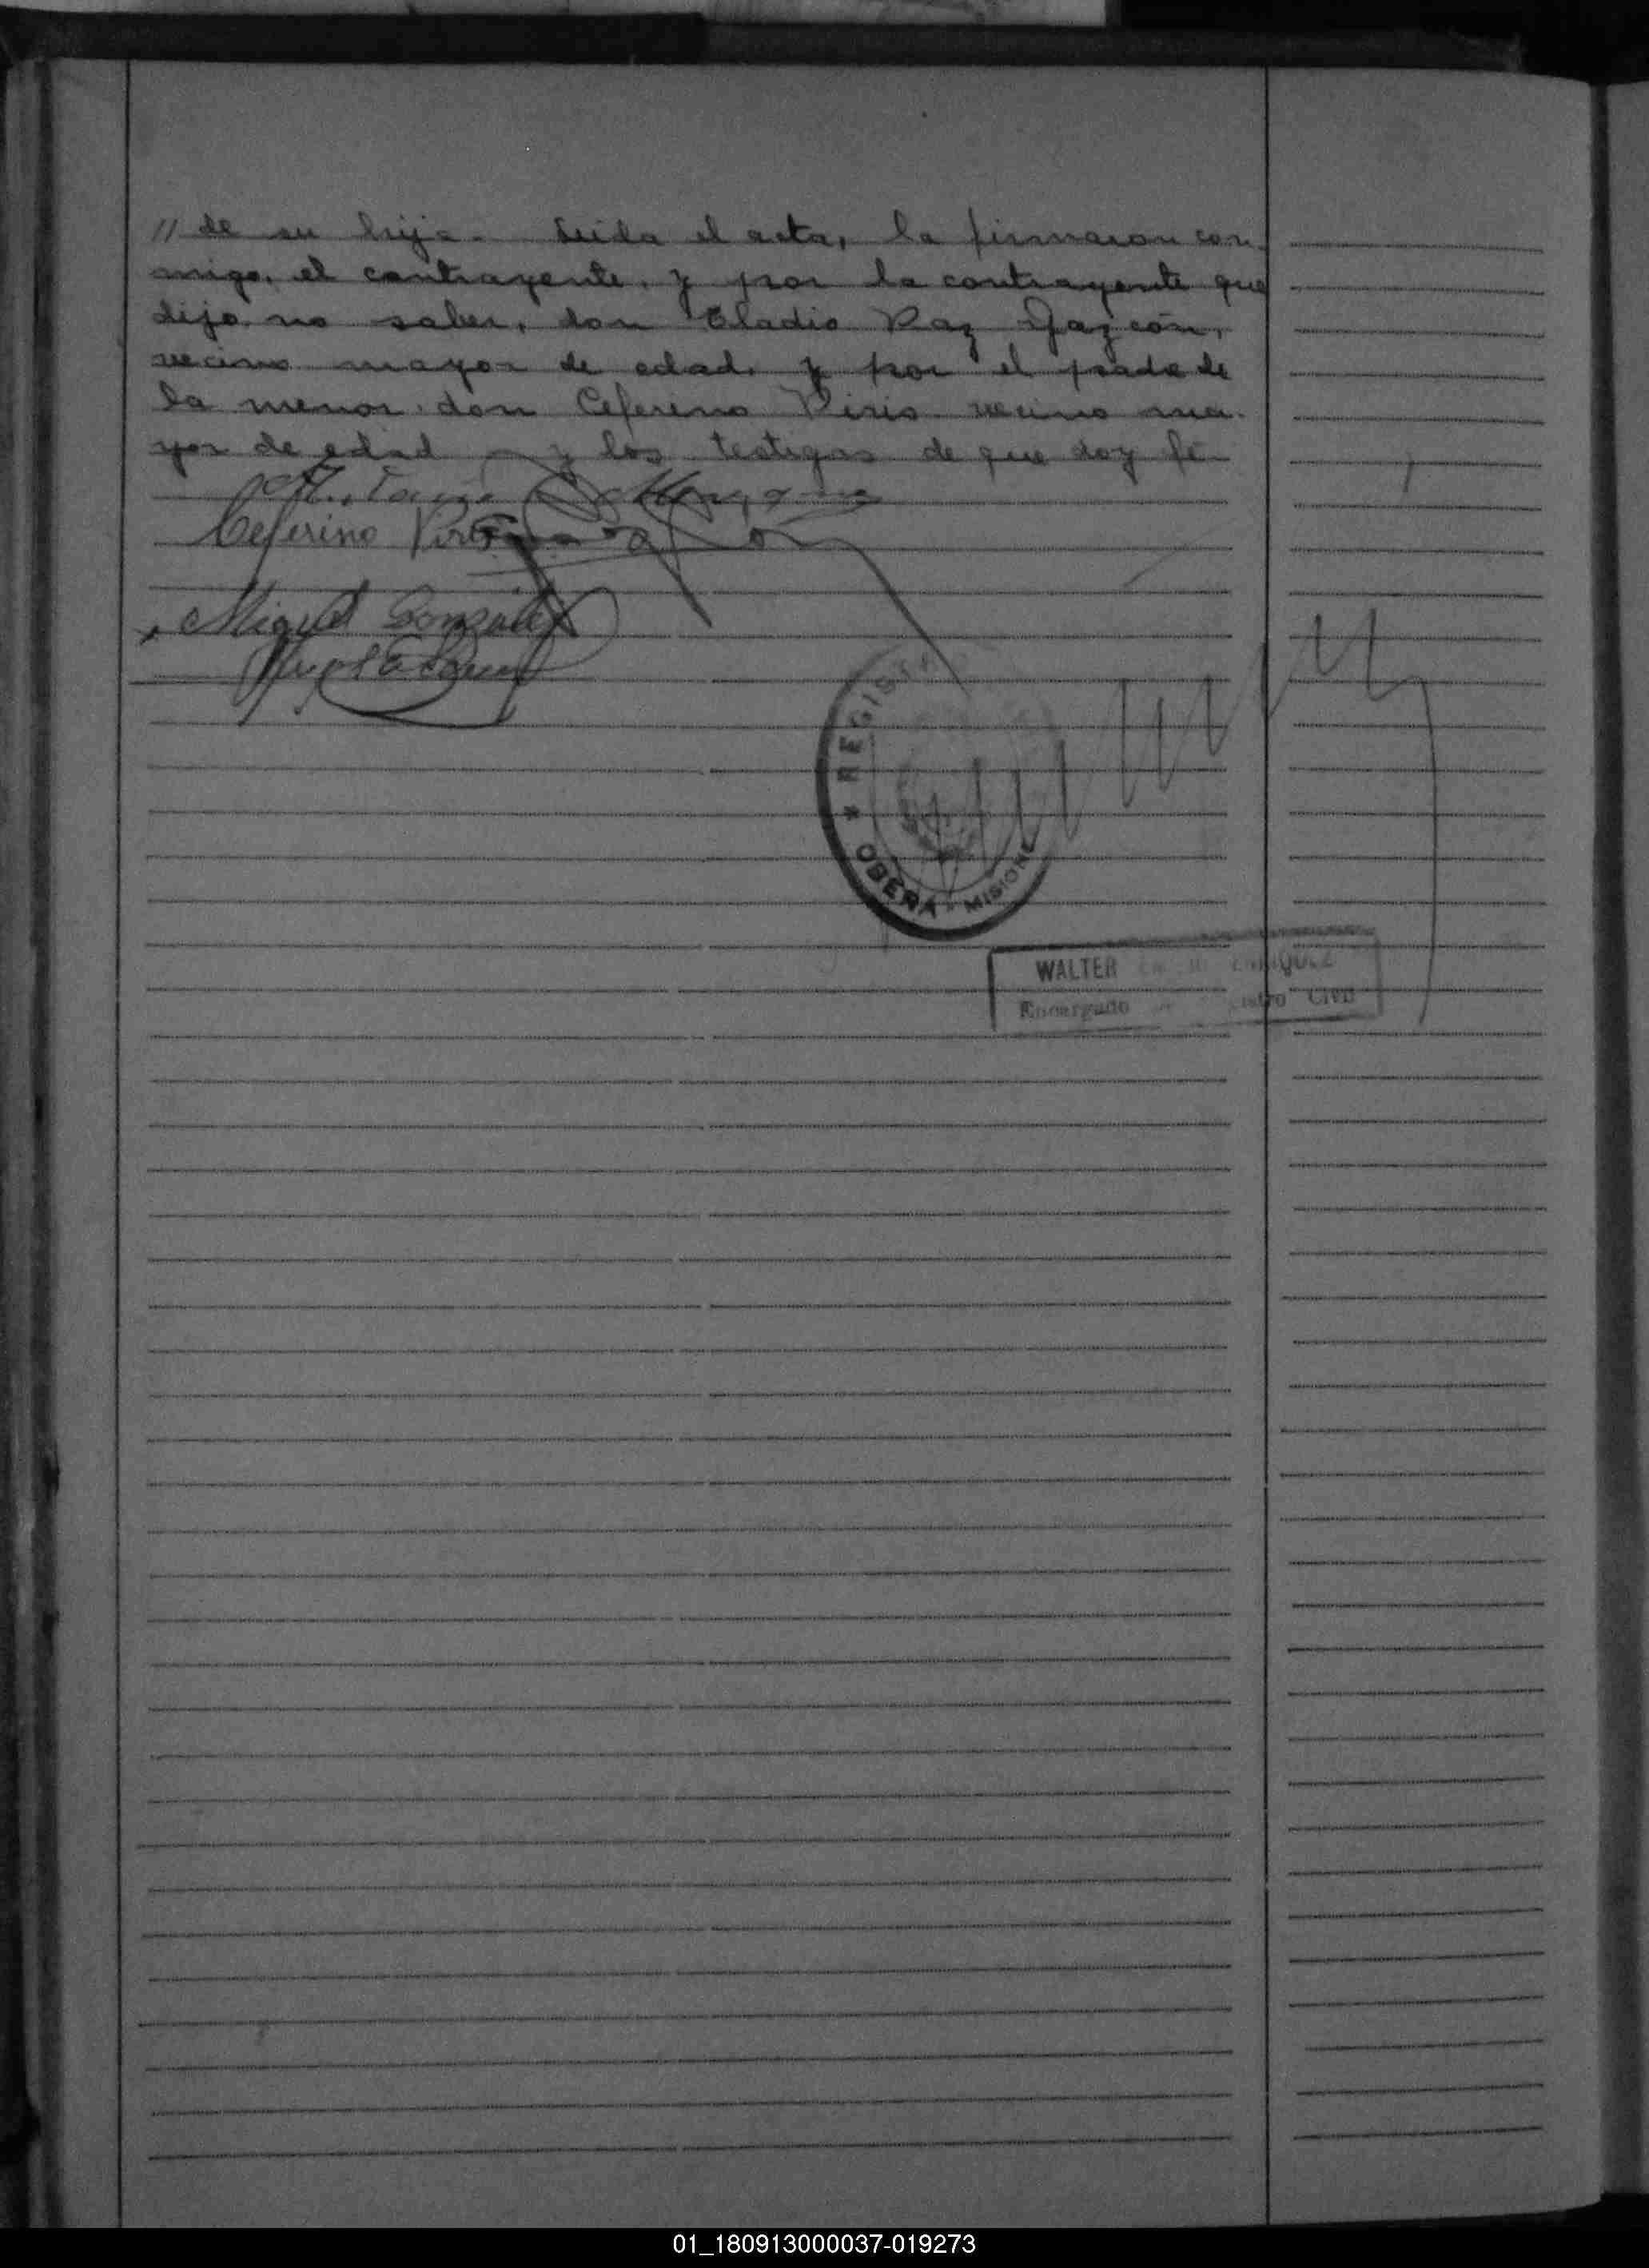 // de su hija - Leida el acta, la firmaron con-
migo, el contrayente, y por la contrayente que
dijo no saber, don Eladio Paz Gazcón,
vecino mayor de edad, y por el padre de
la menor don Ceferino Piris vecino ma-
yor de edad y los testigos de que doy fé
Ceferino Piris
Miguel González
REGIST
OBERA - MISIONE
WALTER
Encargado Civil
01_180913000037-019273